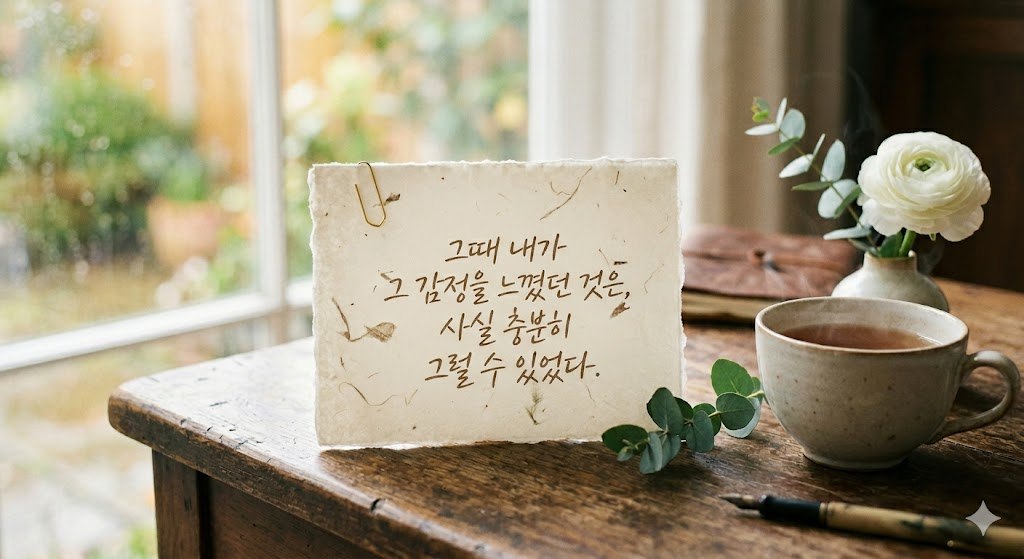 그때 내가
그 감정을 느꼈던 것은,
사실 충분히
그럴 수 있었다.